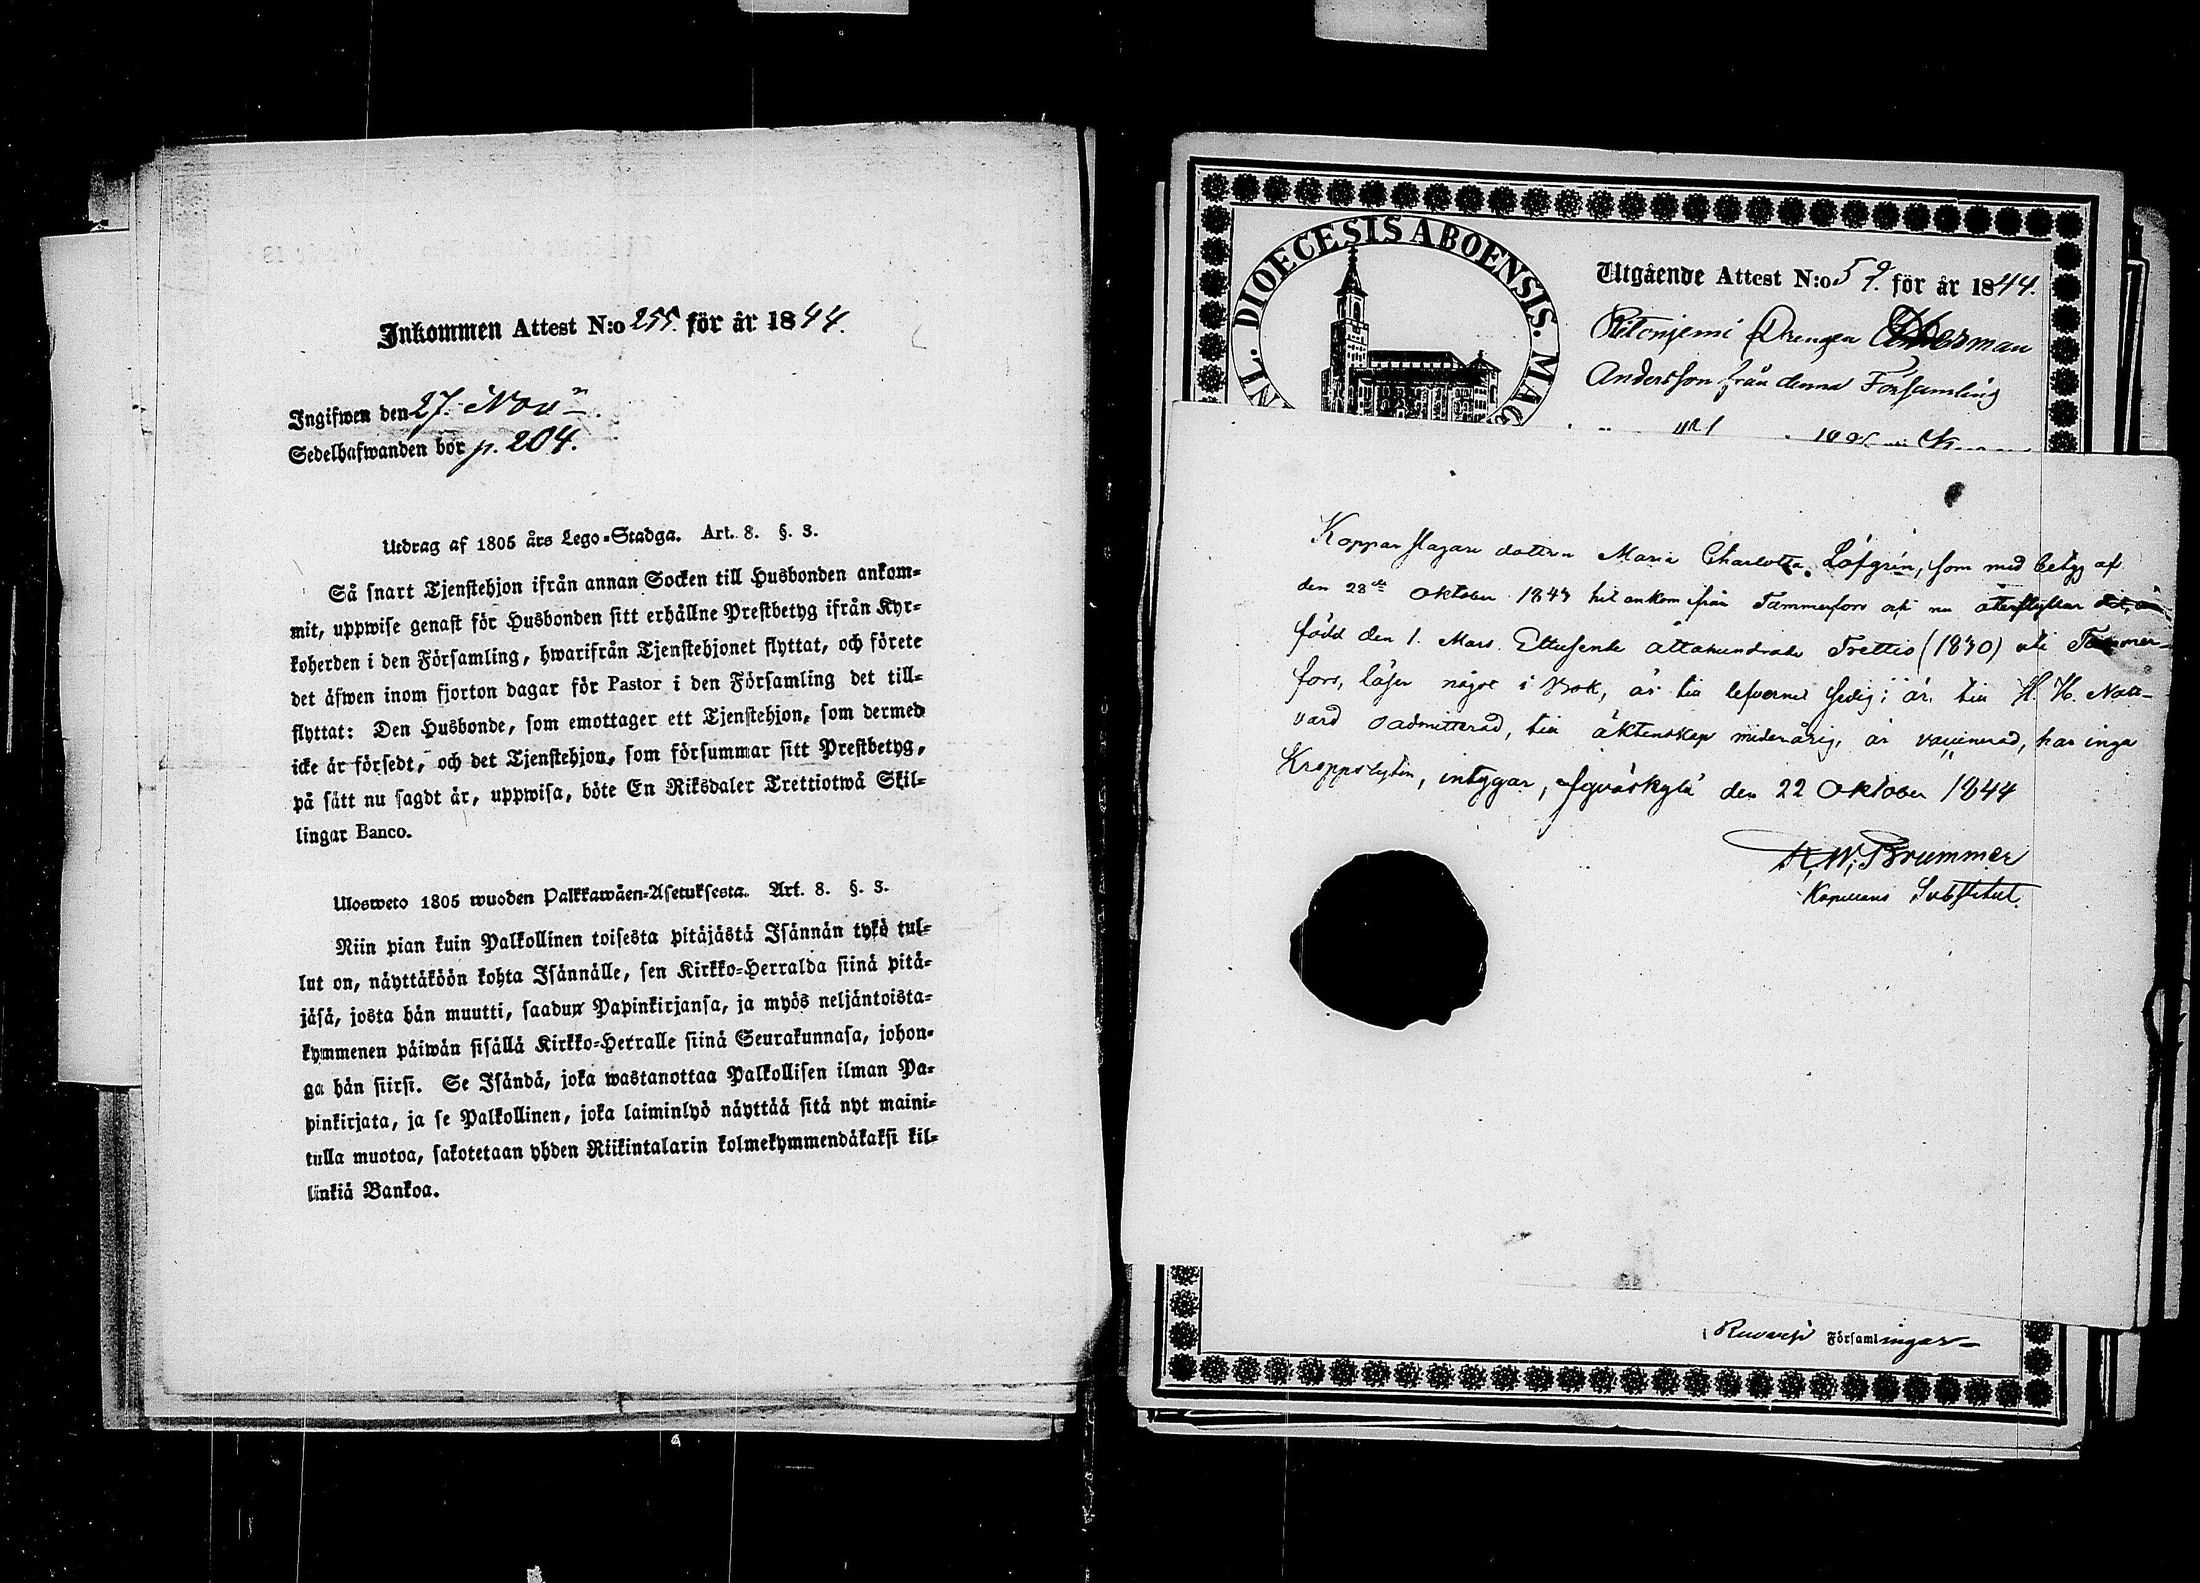 Inkommen Attest N:o 255. för år 1844.
Ingifwen den 27. Nov:n
Sedelhafwanden bor p. 204.
Utdrag af 1805 års Lego-Stadga. Art. 8. §. 3.
Så snart Tjenstehjon ifrån annan Socken till Husbonden ankom-
mit, uppwise genast för Husbonden sitt erhållne Prestbetyg ifrån Kyr-
koherden i den Församling, hwarifrån Tjenstehjonet flyttat, och förete
det äfwen inom fjorton dagar för Pastor i den Församling det till-
flyttat: Den Husbonde, som emottager ett Tjenstehjon, som dermed
icke är försedt, och det Tjenstehjon, som försummar sitt Prestbetyg,
på sätt nu sagdt är, uppwisa, böte En Riksdaler Trettiotwå Skil-
lingar Banco.
Ulosweto 1805 wuoden Palkkawäen-Asetuksesta. Art. 8. §. 3.
Niin pian kuin Palkollinen toisesta pitäjästä Isännän tykö tul-
lut on, näyttäköön kohta Isännälle, sen Kirkko-Herralda siinä pitä-
jäsä, josta hän muutti, saadun Papinkirjansa, ja myös neljäntoista-
kymmenen päiwän sisällä Kirkko-Herralle siinä Seurakunnasa, johon-
ga hän siirsi. Se Isändä, joka wastanottaa Palkollisen ilman Pa-
pinkirjata, ja se Palkollinen, joka laiminlyö näyttää sitä nyt maini-
tulla muotoa, sakotetaan yhden Riikintalarin kolmekymmendäkaksi kil-
linkiä Bankoa.
DIOECESIS ABOENSIS. MAG
Utgående Attest N:o 59. för år 1844.
Drengen Herman
Andersson från denna Församling
Kopparslagare dottren Maria Charlotta Löfgrén, som med betyg af
den 28de Oktober 1843 hit ankom från Tammerfors och nu återflyttar
född den 1. Mars Ettusende åttahundrade Trettio (1830) uti Tammer-
fors, läser något i Bok, är till lefvernet sedig; är till H. H. Natt-
vard oadmitterad, till äktenskap minderårig, är vaccinerad, har inga
Kroppslyten, intygar, Jyväskylä den 22 Oktober 1844
K. W. Brummer
Kapellans Substitut.
i Ruovesi Församlingar